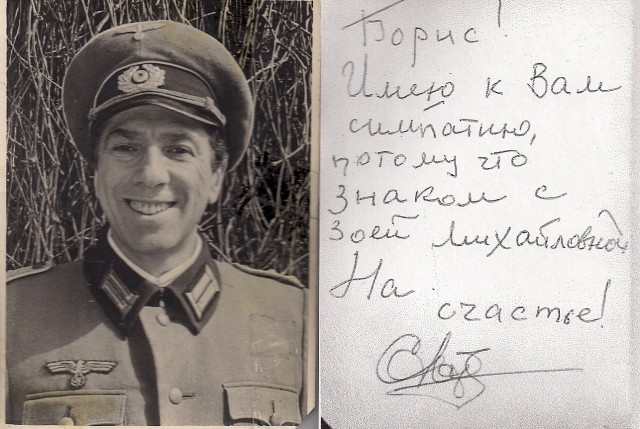 Борис!
Имею к Вам
симпатию,
потому что
знаком с
Зоей Михайловной
На
счастье!